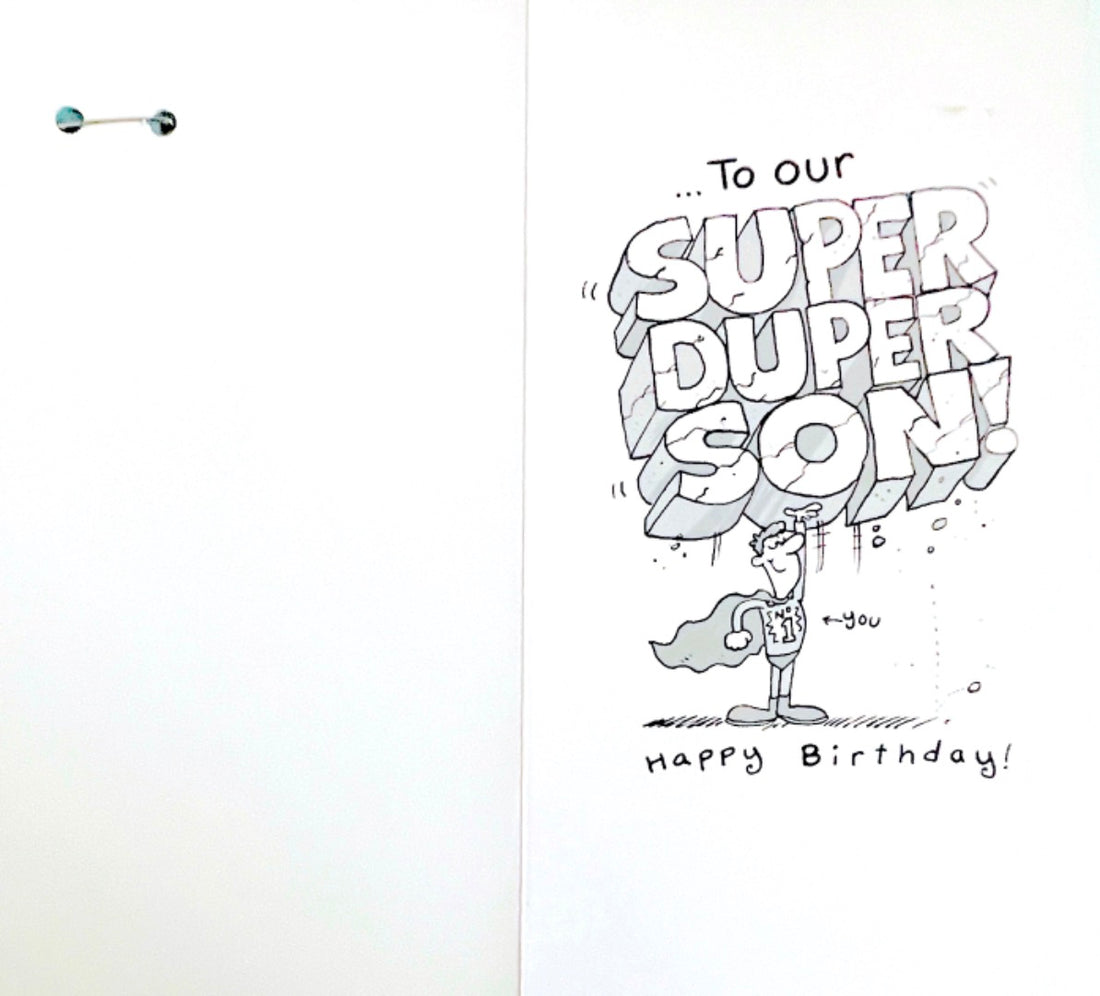 ... To our
SUPER
DUPER
SON!
No
1
←you
Happy Birthday!